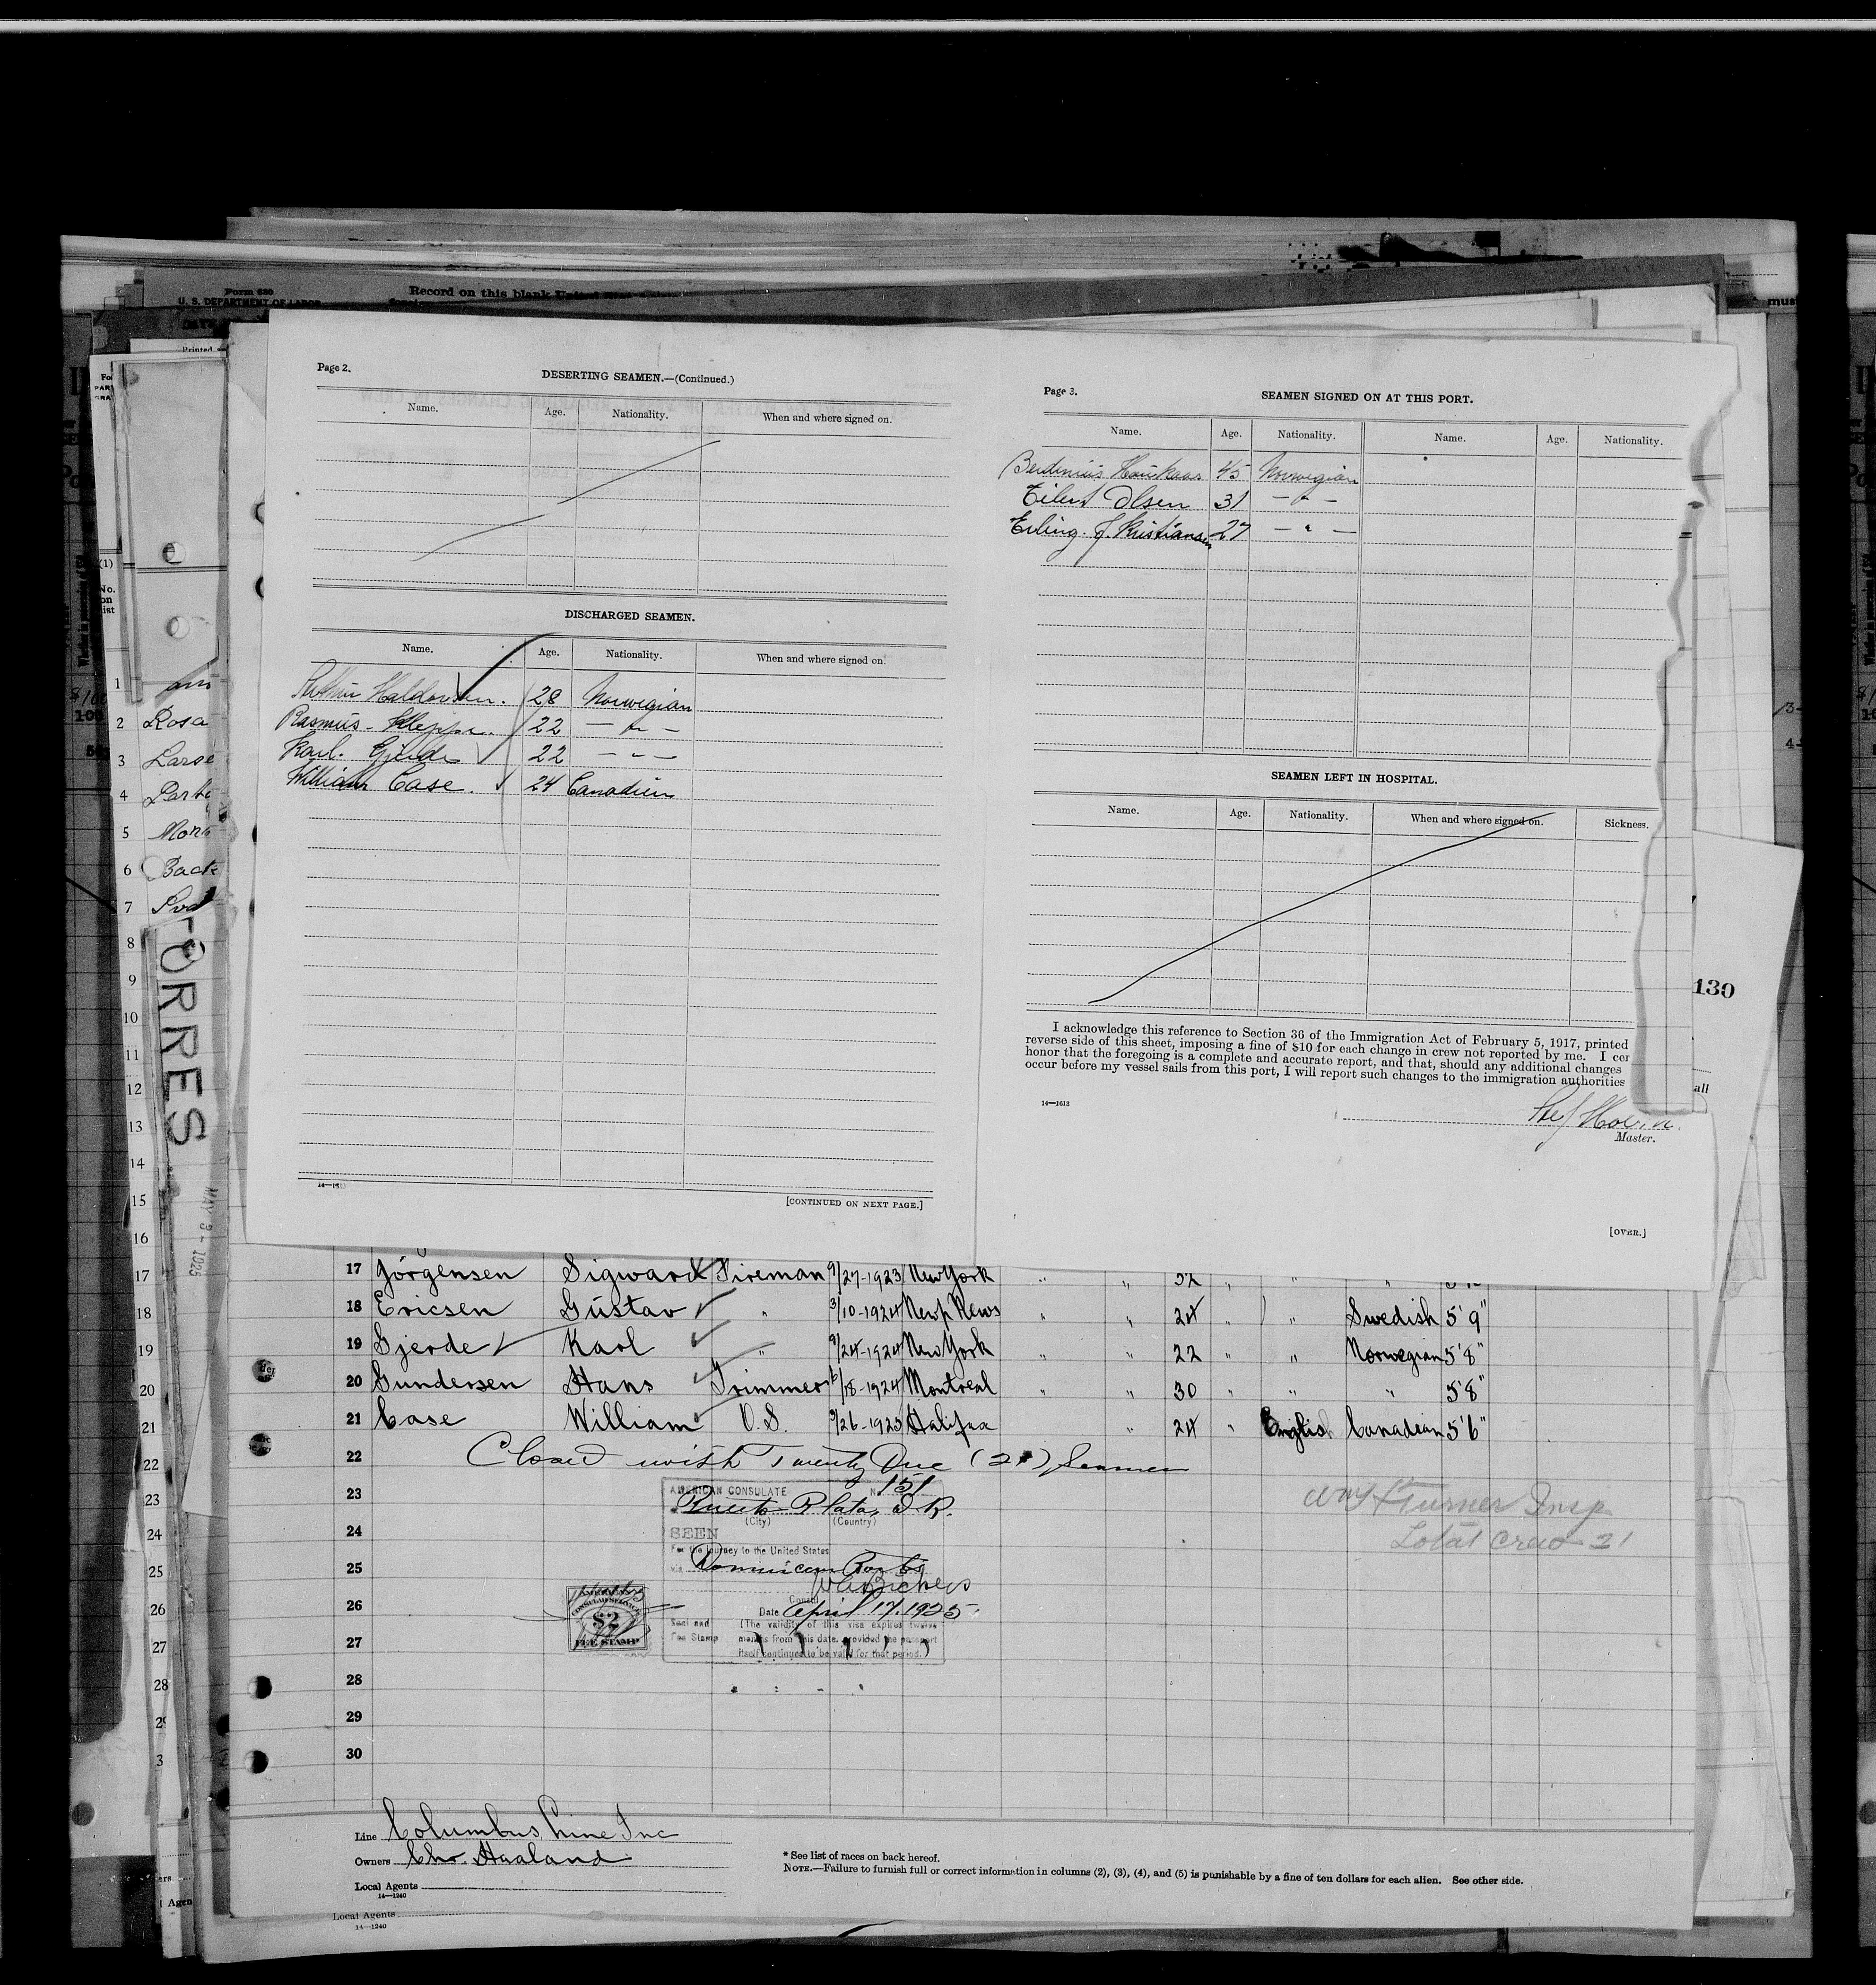 Form 680
U. S. DEPARTMENT OF LABOR
Record on this blank United
Printed
must
Page 2.
DESERTING SEAMEN.—(Continued.)
Name. Age. Nationality. When and where signed on.
DISCHARGED SEAMEN.
Name. Age. Nationality. When and where signed on.
28 Norwegian
Rasmus 22 — " —
Karl. Gjerde 22 — " —
William Case. 24 Canadien
14—1613
[CONTINUED ON NEXT PAGE.]
Page 3.
SEAMEN SIGNED ON AT THIS PORT.
Name. Age. Nationality. Name. Age. Nationality.
45 Norwegian
Eilert Olsen 31 — " —
Erling. J. Kristiansen 27 — " —
SEAMEN LEFT IN HOSPITAL.
Name. Age. Nationality. When and where signed on. Sickness.
I acknowledge this reference to Section 36 of the Immigration Act of February 5, 1917, printed
reverse side of this sheet, imposing a fine of $10 for each change in crew not reported by me. I cer
honor that the foregoing is a complete and accurate report, and that, should any additional changes
occur before my vessel sails from this port, I will report such changes to the immigration authorities
14—1613
Master.
[OVER.]
130
all
(1)
No.
on
list
1
2 Rosa
3 Larse
4
5
6 Back
7
8
9
10
11
12
13
14
15
16
17
18
19
20
21
22
23
24
25
26
27
28
TORRES
MAY 3 - 1925
17 Jörgensen Sigward Fireman 9/27-1923 New York " " 32 " " "
18 Ericsen Gustav " 3/10-1924 Newp News " " 24 " " Swedish 5'9"
19 Gjerde Karl " 9/24-1924 New York " " 22 " " Norwegian 5'8"
20 Gundersen Hans Trimmer 6/18-1924 Montreal " " 30 " " " 5'8"
21 Case William O.S. Halifax " 24 " English Canadian 5'6"
22 Closed with Twenty One (21) Seamen
23
24
25
26
27
28
29
30
AMERICAN CONSULATE No 151
Puerto Plata, D. R.
(City) (Country)
SEEN
For the journey to the United States
Consul
Date April 17, 1925.
Seal and
Fee Stamp
(The validity of this visa expires twelve
months from this date, provided the passport
itself continues to be valid for that period.)
AMERICAN
CONSULAR SERVICE
$2
FEE STAMP
Wm Turner Insp
Total Crew 21
Line Columbus Line Inc
Owners Chr. Haaland
Local Agents
14—1240
* See list of races on back hereof.
NOTE.—Failure to furnish full or correct information in columns (2), (3), (4), and (5) is punishable by a fine of ten dollars for each alien. See other side.
Local Agents
14—1240